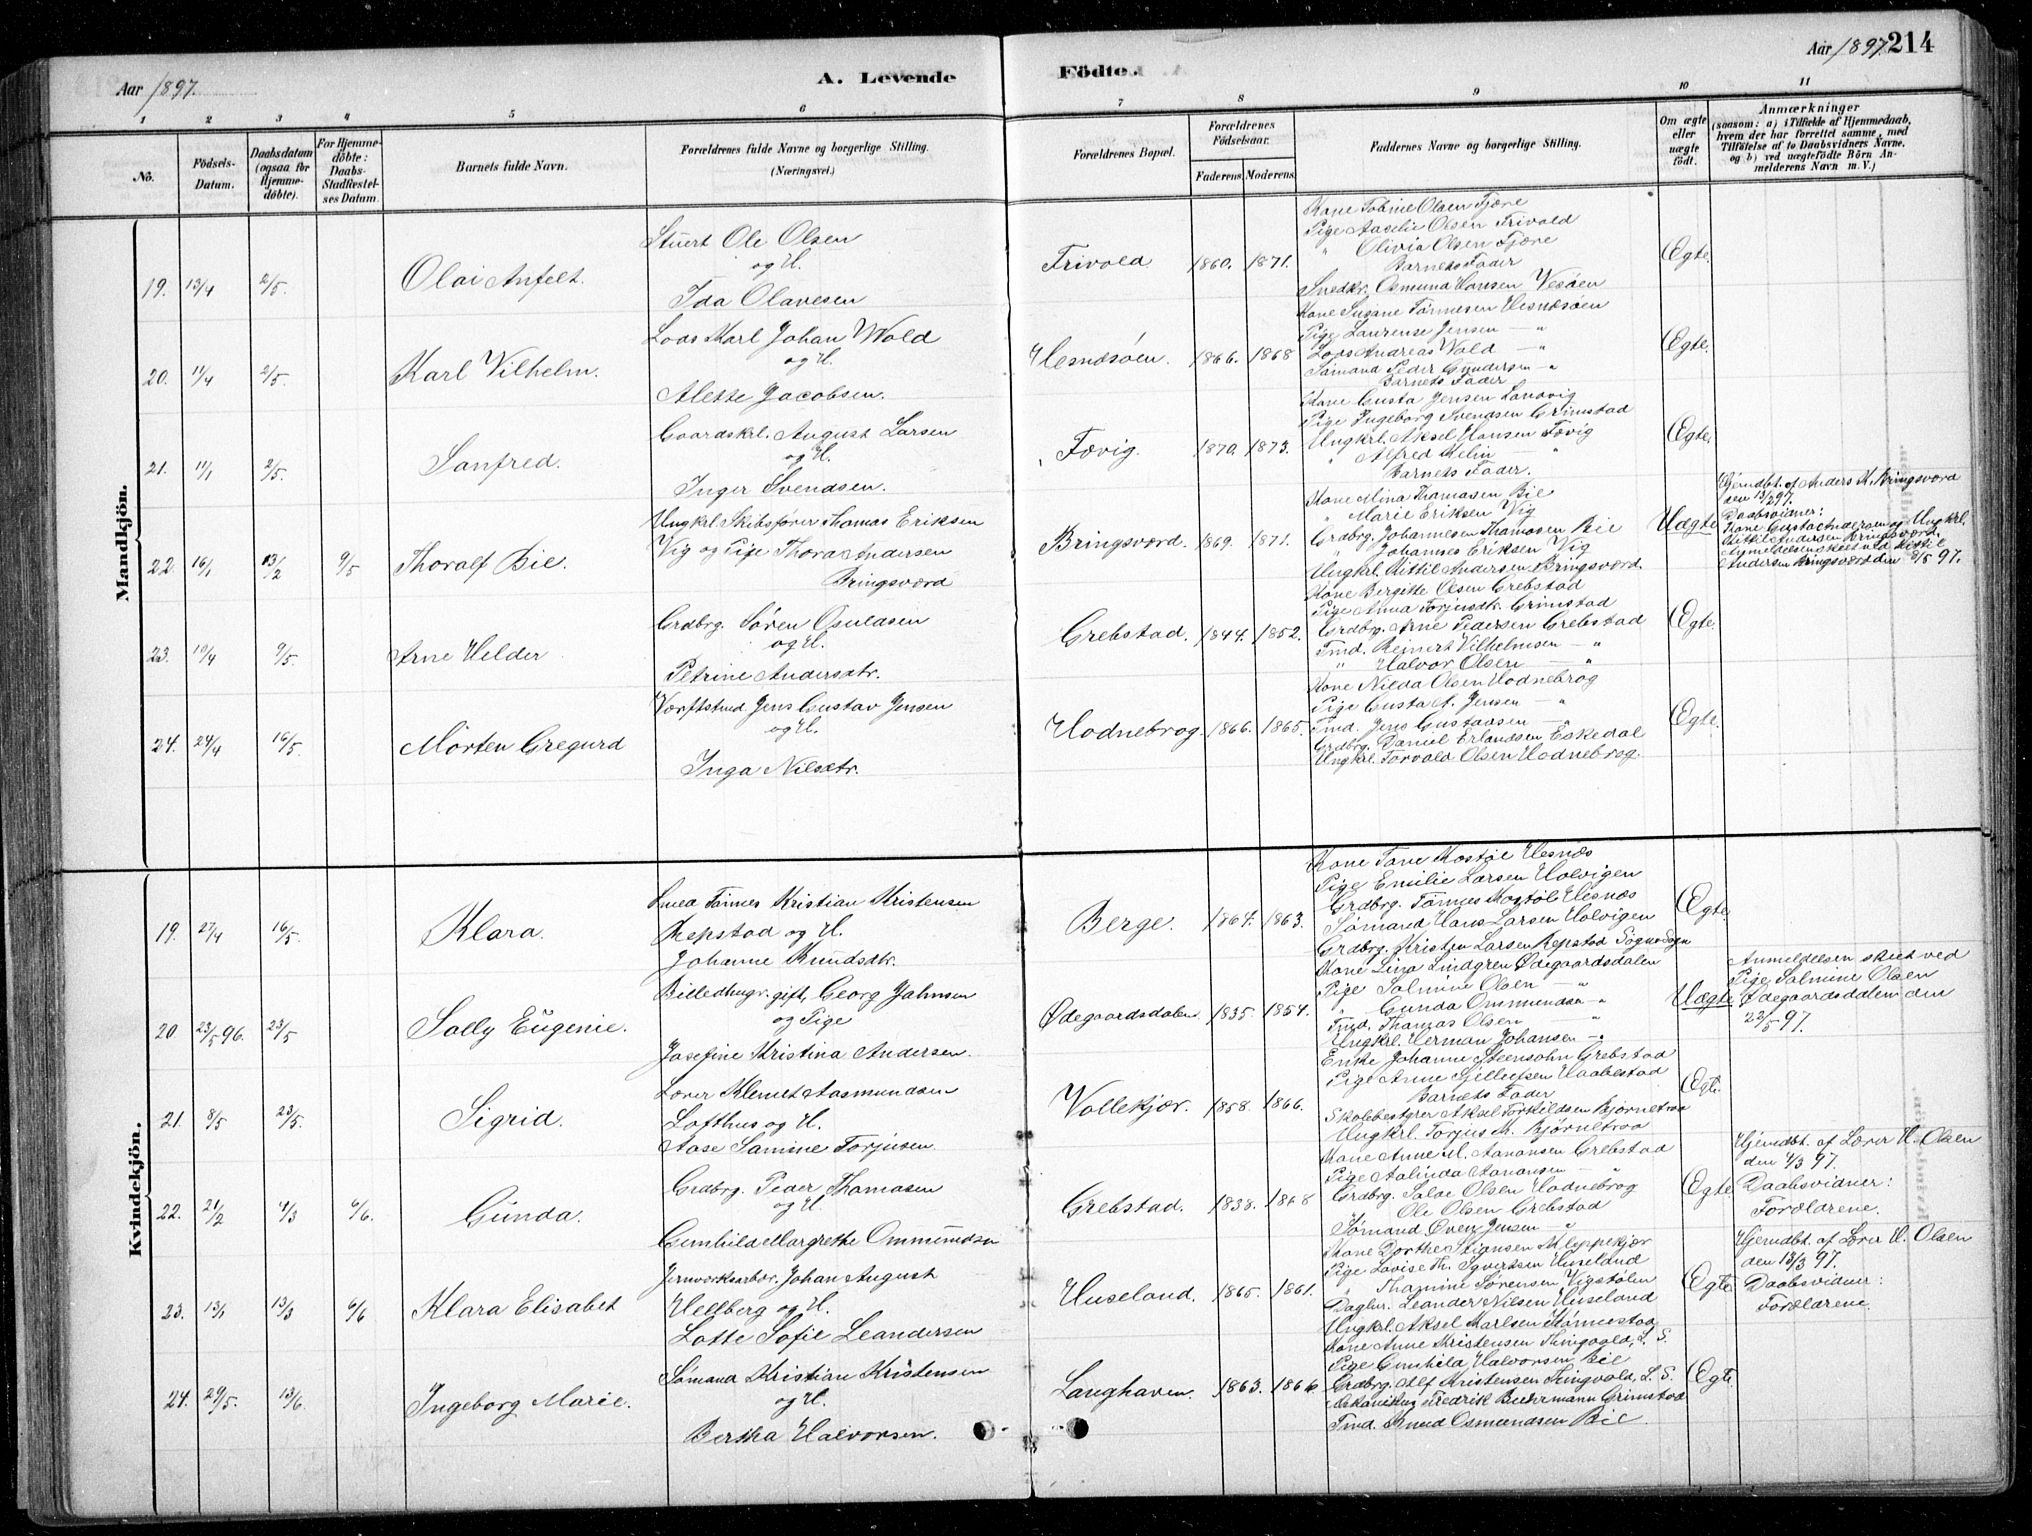 Aar 1897.
A. Levende
Födte.
Aar 1897. 214
1 2 3 4 5 6 7 8 9 10 11
No.
Födsels-Datum.
Daabsdatum (ogsaa for Hjemmedöbte).
For Hjemmedöbte: Daabs-Stadfæstelses Datum.
Barnets fulde Navn.
Forældrenes fulde Navne og borgerlige Stilling. (Næringsvei.)
Forældrenes Bopæl.
Forældrenes Födselsaar.
Faderens. Moderens.
Faddernes Navne og borgerlige Stilling.
Om ægte eller uægte födt.
Anmærkninger
(saasom: a) i Tilfælde af Hjemmedaab, hvem der har forrettet samme, med Tilföielse af to Daabsvidners Navne, og b) ved uægtefödte Börn Anmelderens Navn m. V.)
Mandkjön.
19. 13/4 2/5. Olai Anfelt.
Stuert Ole Olsen
og H.
Ida Olavesen
Frivold 1860. 1871.
Kone Tobine Olsen Fjære
Pige Aaselie Olsen Frivold
" Olivia Olsen Fjære
Barnets Fader
Snedkr. Osmund Hansen Vesöen
Egte.
20. 11/4 2/5. Karl Vilhelm.
Lods Karl Johan Wold
og H.
Alette Jacobsen.
Hesnæsöen. 1866. 1868
Kone Susane Tönnesen Hesnæsöen
Pige Laurense Jensen — "
Lods Andreas Wold — "
Sömand Peder Gundersen — "
Barnets Fader
Egte.
21. 11/1 2/5. Sanfred.
Gaardskrl. August Larsen
og H.
Inger Svendsen.
Fævig. 1870. 1873.
Kone Gusta Jensen Landvig
Pige Ingeborg Svendsen Grimstad
Ungkrl. Aksel Hansen Fævig
" Alfred Melin — "
Barnets Fader.
Egte
22. 16/1 13/2 9/5 Thoralf Bie.
Ungkrl. Skibsfører Thomas Eriksen
Vig og Pige Thora Andersen
Bringsværd
Bringsværd. 1869. 1871.
Kone Mina Thomasen Bie
" Marie Eriksen Vig
Grdbrg. Johannesen Thomasen Bie
" Johannes Eriksen Vig
Ungkrl. Kittil Andersen Bringsværd.
Uægte
Hjemdbt. af Anders K. Bringsværd
den 13/2 97.
Daabsvidner:
Kone Gusta Andersen og Ungkrl.
Kittil Andersen Bringsværd.
Anmeldelsen skeet ved Kittil
Andersen Bringsværd den 9/5 97.
23. 10/4 9/5. Arne Helder
Grdbrg. Søren Osulasen
og H.
Petrine Andersdtr.
Grebstad. 1844. 1852.
Kone Bergitte Olsen Grebstad
Pige Anna Torjusdtr. Grimstad
Grdbrg. Arne Pedersen Grebstad
Tmd. Reinert Vilhelmsen — "
" Halvor Olsen — "
Egte.
24. 24/4 16/5. Mörten Gregurd
Værftstmd. Jens Gustav Jensen
og H.
Inga Nilsdtr.
Hodnebrog. 1866. 1865.
Kone Nilda Olsen Hodnebrog
Pige Gusta A. Jensen — "
Tmd. Jens Gustavsen — "
Grdbrg. Daniel Erlandsen Eskedal
Ungkrl. Torvald Olsen Hodnebrog.
Egte.
Kvindekjön.
19. 27/4 16/5. Klara.
Smed Tönnes Kristian Kristensen
Repstad og H.
Johanne Knudsdtr.
Berge. 1864. 1863.
Kone Tone Mostöl Hesnæs
Pige Emilie Larsen Halvigen
Grdbrg. Tönnes Mostöl Hesnæs
Sömand Hans Larsen Halvigen
Grdbrg. Kristen Larsen Repstad Søgne Sogn
Egte.
20 23/5 96. 23/5 Solly Eugenie.
Billedhugr. gift, Georg Jahnsen
og Pige
Josefine Kristina Andersen.
Ødegaardsdalen 1835. 1854.
Kone Lina Lindgren Ødegaardsdalen
Pige Salmine Olsen — "
" Gunda Ommundsen — "
Tmd. Thomas Olsen "
Ungkrl. Herman Johansen — "
Uægte
Anmeldelsen skeet ved
Pige Salmine Olsen
Ødegaardsdalen den
23/5 97.
21. 8/5 23/5. Sigrid.
Lærer Klemet Aasmundsen
Lofthus og H.
Aase Samine Torjusen
Vollekjær. 1858. 1866.
Enke Johanne Steensohn Grebstad
Pige Anne Sjellulfsen Haabestad
Barnets Fader
Skolebestyrer Aksel Torkildsen Bjørnetraa
Ungkrl. Torjus M. Bjørnetraa
Egte.
22. 21/2 4/3 6/6. Gunda.
Grdbrg. Peder Thomasen
og H.
Gunhild Margrethe Ommundsen
Grebstad. 1838. 1868
Kone Anne M. Aanonsen Grebstad
Pige Aalinda Aanonsen — "
Grdbrg. Salve Olsen Hodnebrog
Ole Olsen Grebstad
Sømand Oven Jensen — "
Egte.
Hjemdbt. af Lærer H. Olsen
den 4/3 97.
Daabsvidner:
Forældrene.
23. 13/1 13/3 6/6 Klara Elisabet
Jernværksarbdr. Johan August
Hellberg og H.
Lotte Sofie Leandersen
Huseland. 1865. 1861.
Kone Dorthe Stiansen Kleppekjær
Pige Lovise Th. Syvertsen Huseland
" Thamine Sørensen Vigstølen
Daglnr. Leander Nilsen Huseland
Ungkrl. Aksel Karlsen Rønnestad
Egte
Hjemdbt. af Lærer H. Olsen
den 13/3 97.
Daabsvidner:
Forældrene.
24. 29/5. 13/6. Ingeborg Marie.
Sømand Kristian Kristensen
og H.
Bertha Halvorsen.
Langhaven. 1863. 1866.
Kone Anne Kristensen Kingvold, L. S.
Pige Gunhild Halvorsen Bie
Grdbrg. Alf Kristensen Kingvold, L. S.
Mekanikus Fredrik Buhrmann Grimstad
Tmd. Knud Osmundsen Bie
Egte.